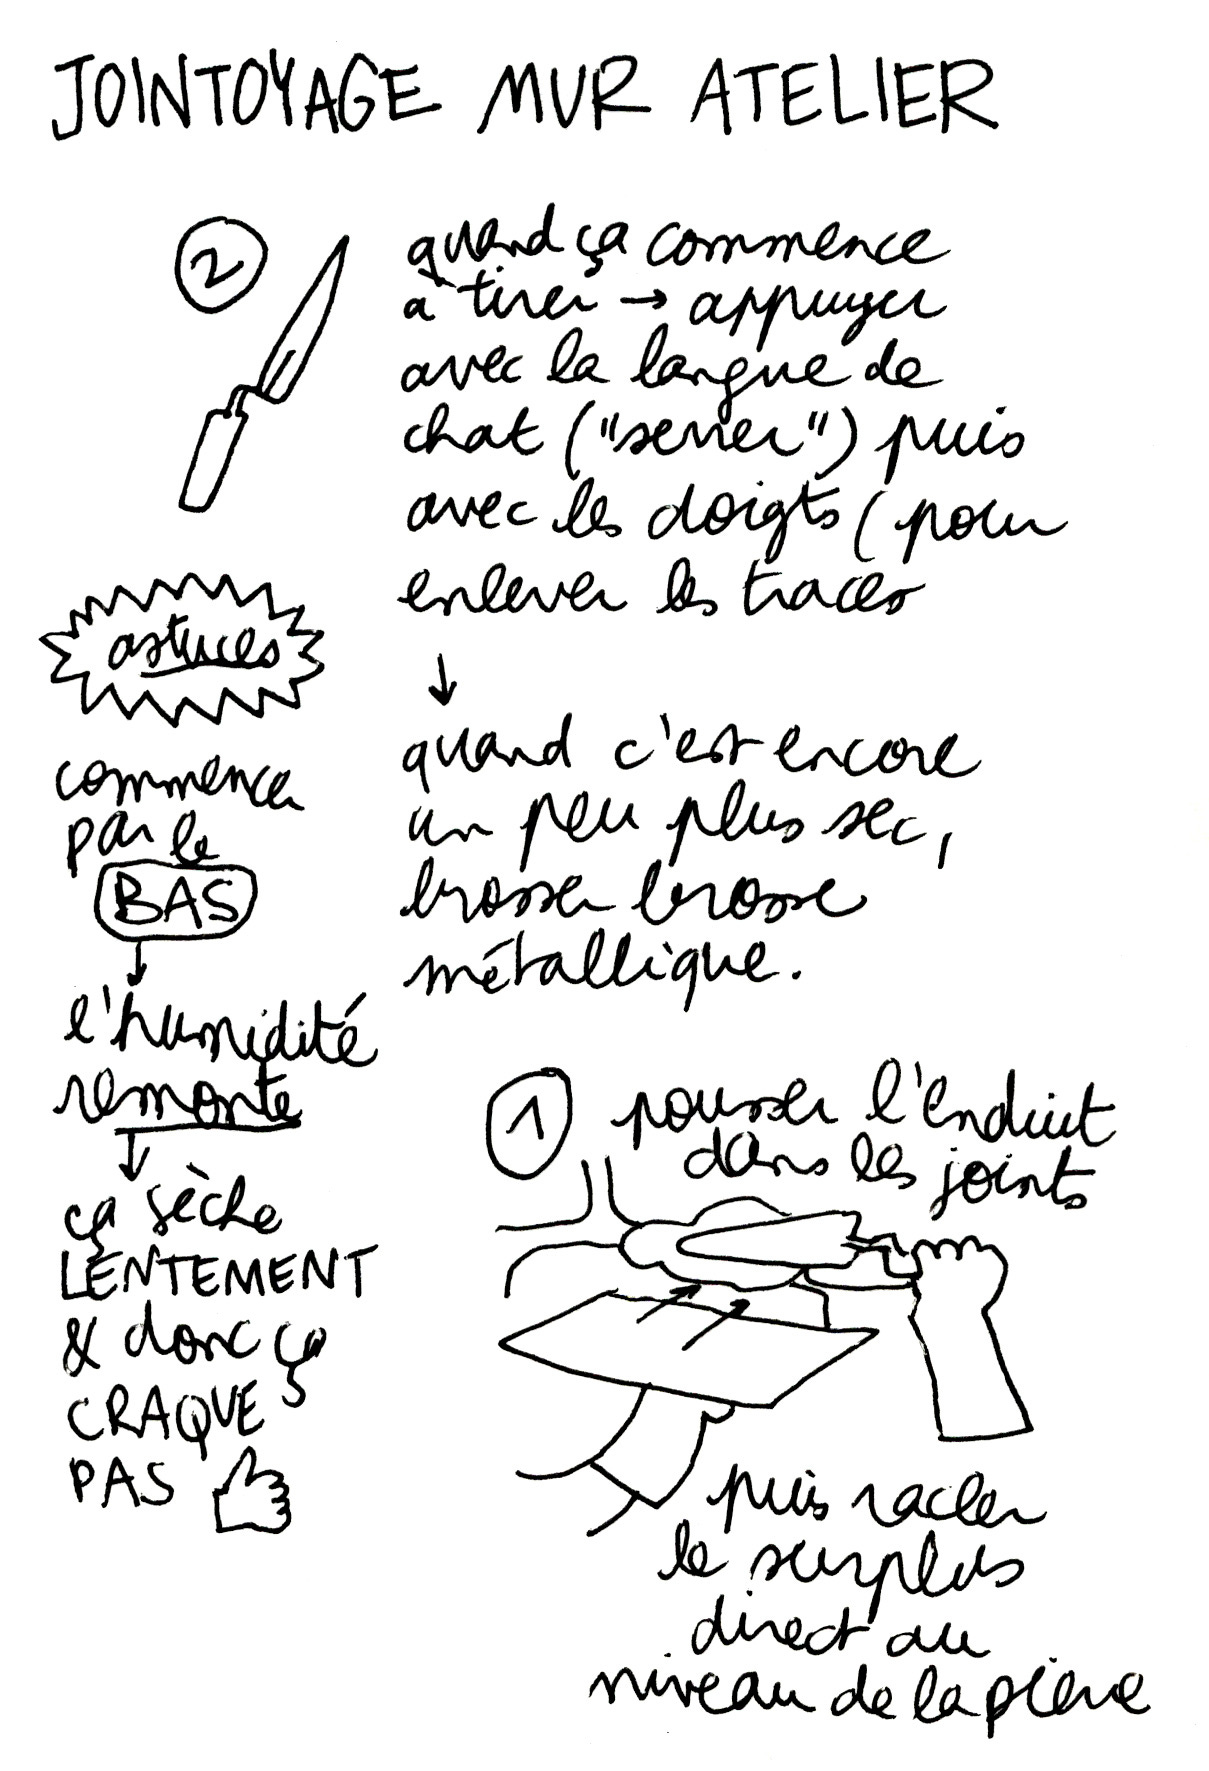 JOINTOYAGE MUR ATELIER
2
quand ça commence
à tirer → appuyer
avec la langue de
chat ("serrer") puis
avec les doigts (pour
enlever les traces
↓
quand c'est encore
un peu plus sec,
brosser brosse
métallique.
astuces
commencer
par le
BAS
↓
l'humidité
remonte
↓
ça sèche
LENTEMENT
& donc ça
CRAQUE
PAS
1
pousser l'enduit
dans les joints
puis racler
le surplus
direct au
niveau de la pierre